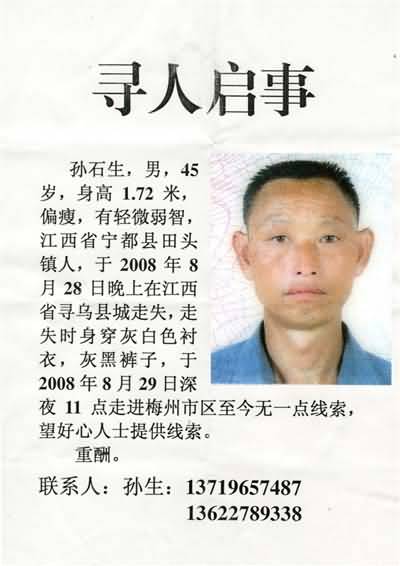 寻人启事
孙石生，男，45
岁，身高 1.72 米，
偏瘦，有轻微弱智，
江西省宁都县田头
镇人，于 2008 年 8
月 28 日晚上在江西
省寻乌县城走失，走
失时身穿灰白色衬
衣，灰黑裤子，于
2008 年 8 月 29 日深
夜 11 点走进梅州市区至今无一点线索，
望好心人士提供线索。
重酬。
联系人：孙生：13719657487
13622789338